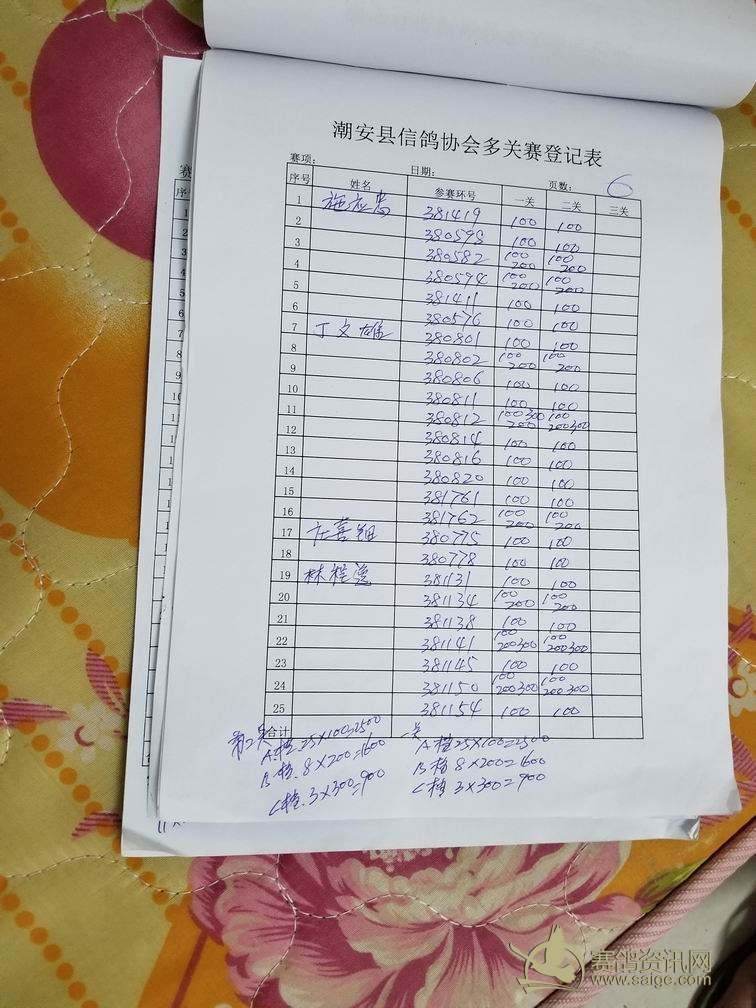 潮安县信鸽协会多关赛登记表
赛项: 日期: 页数: 6
序号 姓名 参赛环号 一关 二关 三关
1 381419 100 100
2 380595 100 100
3 380582 100 200 100 200
4 380594 100 200 100 200
5 381411 100 100
6 380576 100 100
7 丁文雄 380801 100 100
8 380802 100 200 100 200
9 380806 100 100
10 380811 100 100
11 380812 100 300 200 100 200 300
12 380814 100 100
13 380816 100 100
14 380820 100 100
15 381761 100 100
16 381762 100 200 100 200
17 庄喜钿 380775 100 100
18 380778 100 100
19 381131 100 100
20 381134 100 200 100 200
21 381138 100 100
22 381141 100 200 300 100 200 300
23 381145 100 100
24 381150 100 200 300 100 200 300
25 381154 100 100
合计
第2关 A档.25×100=2500
B档.8×200=1600
C档.3×300=900
一关 A档25×100=2500
B档8×200=1600
C档3×300=900
赛
序
1
2
3
4
5
6
7
8
9
10
赛鸽资讯网
www.saige.com